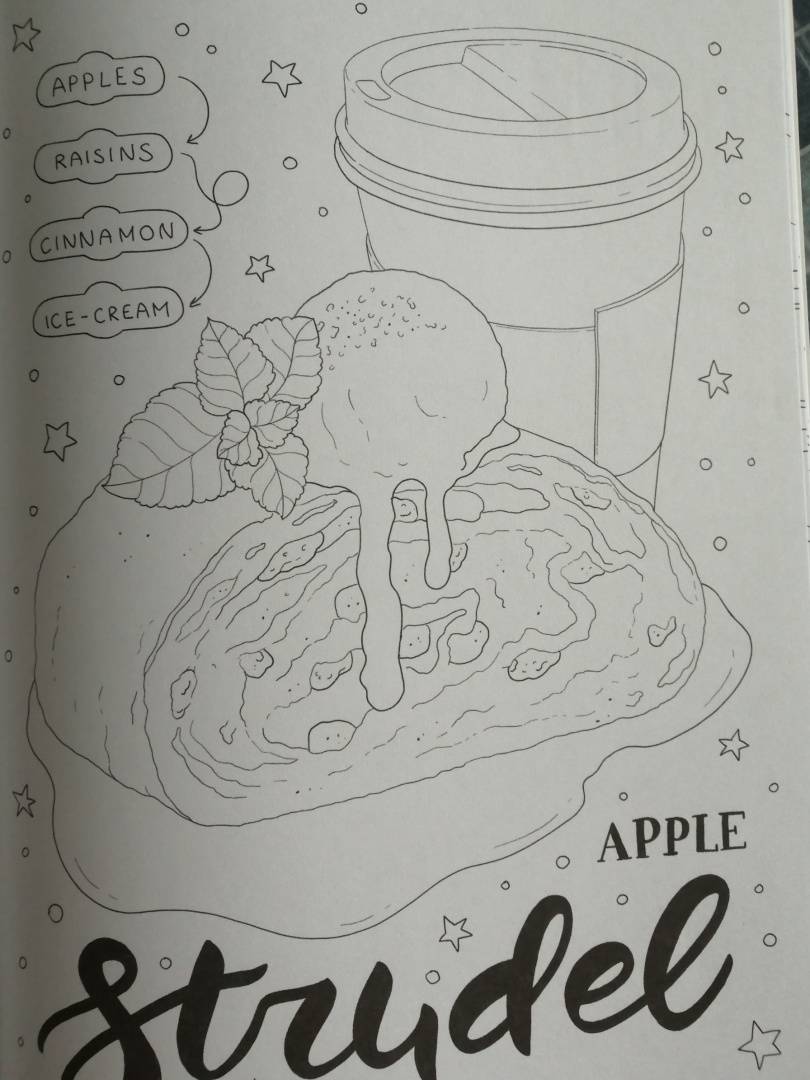 APPLES
RAISINS
CINNAMON
ICE-CREAM
APPLE
Strudel